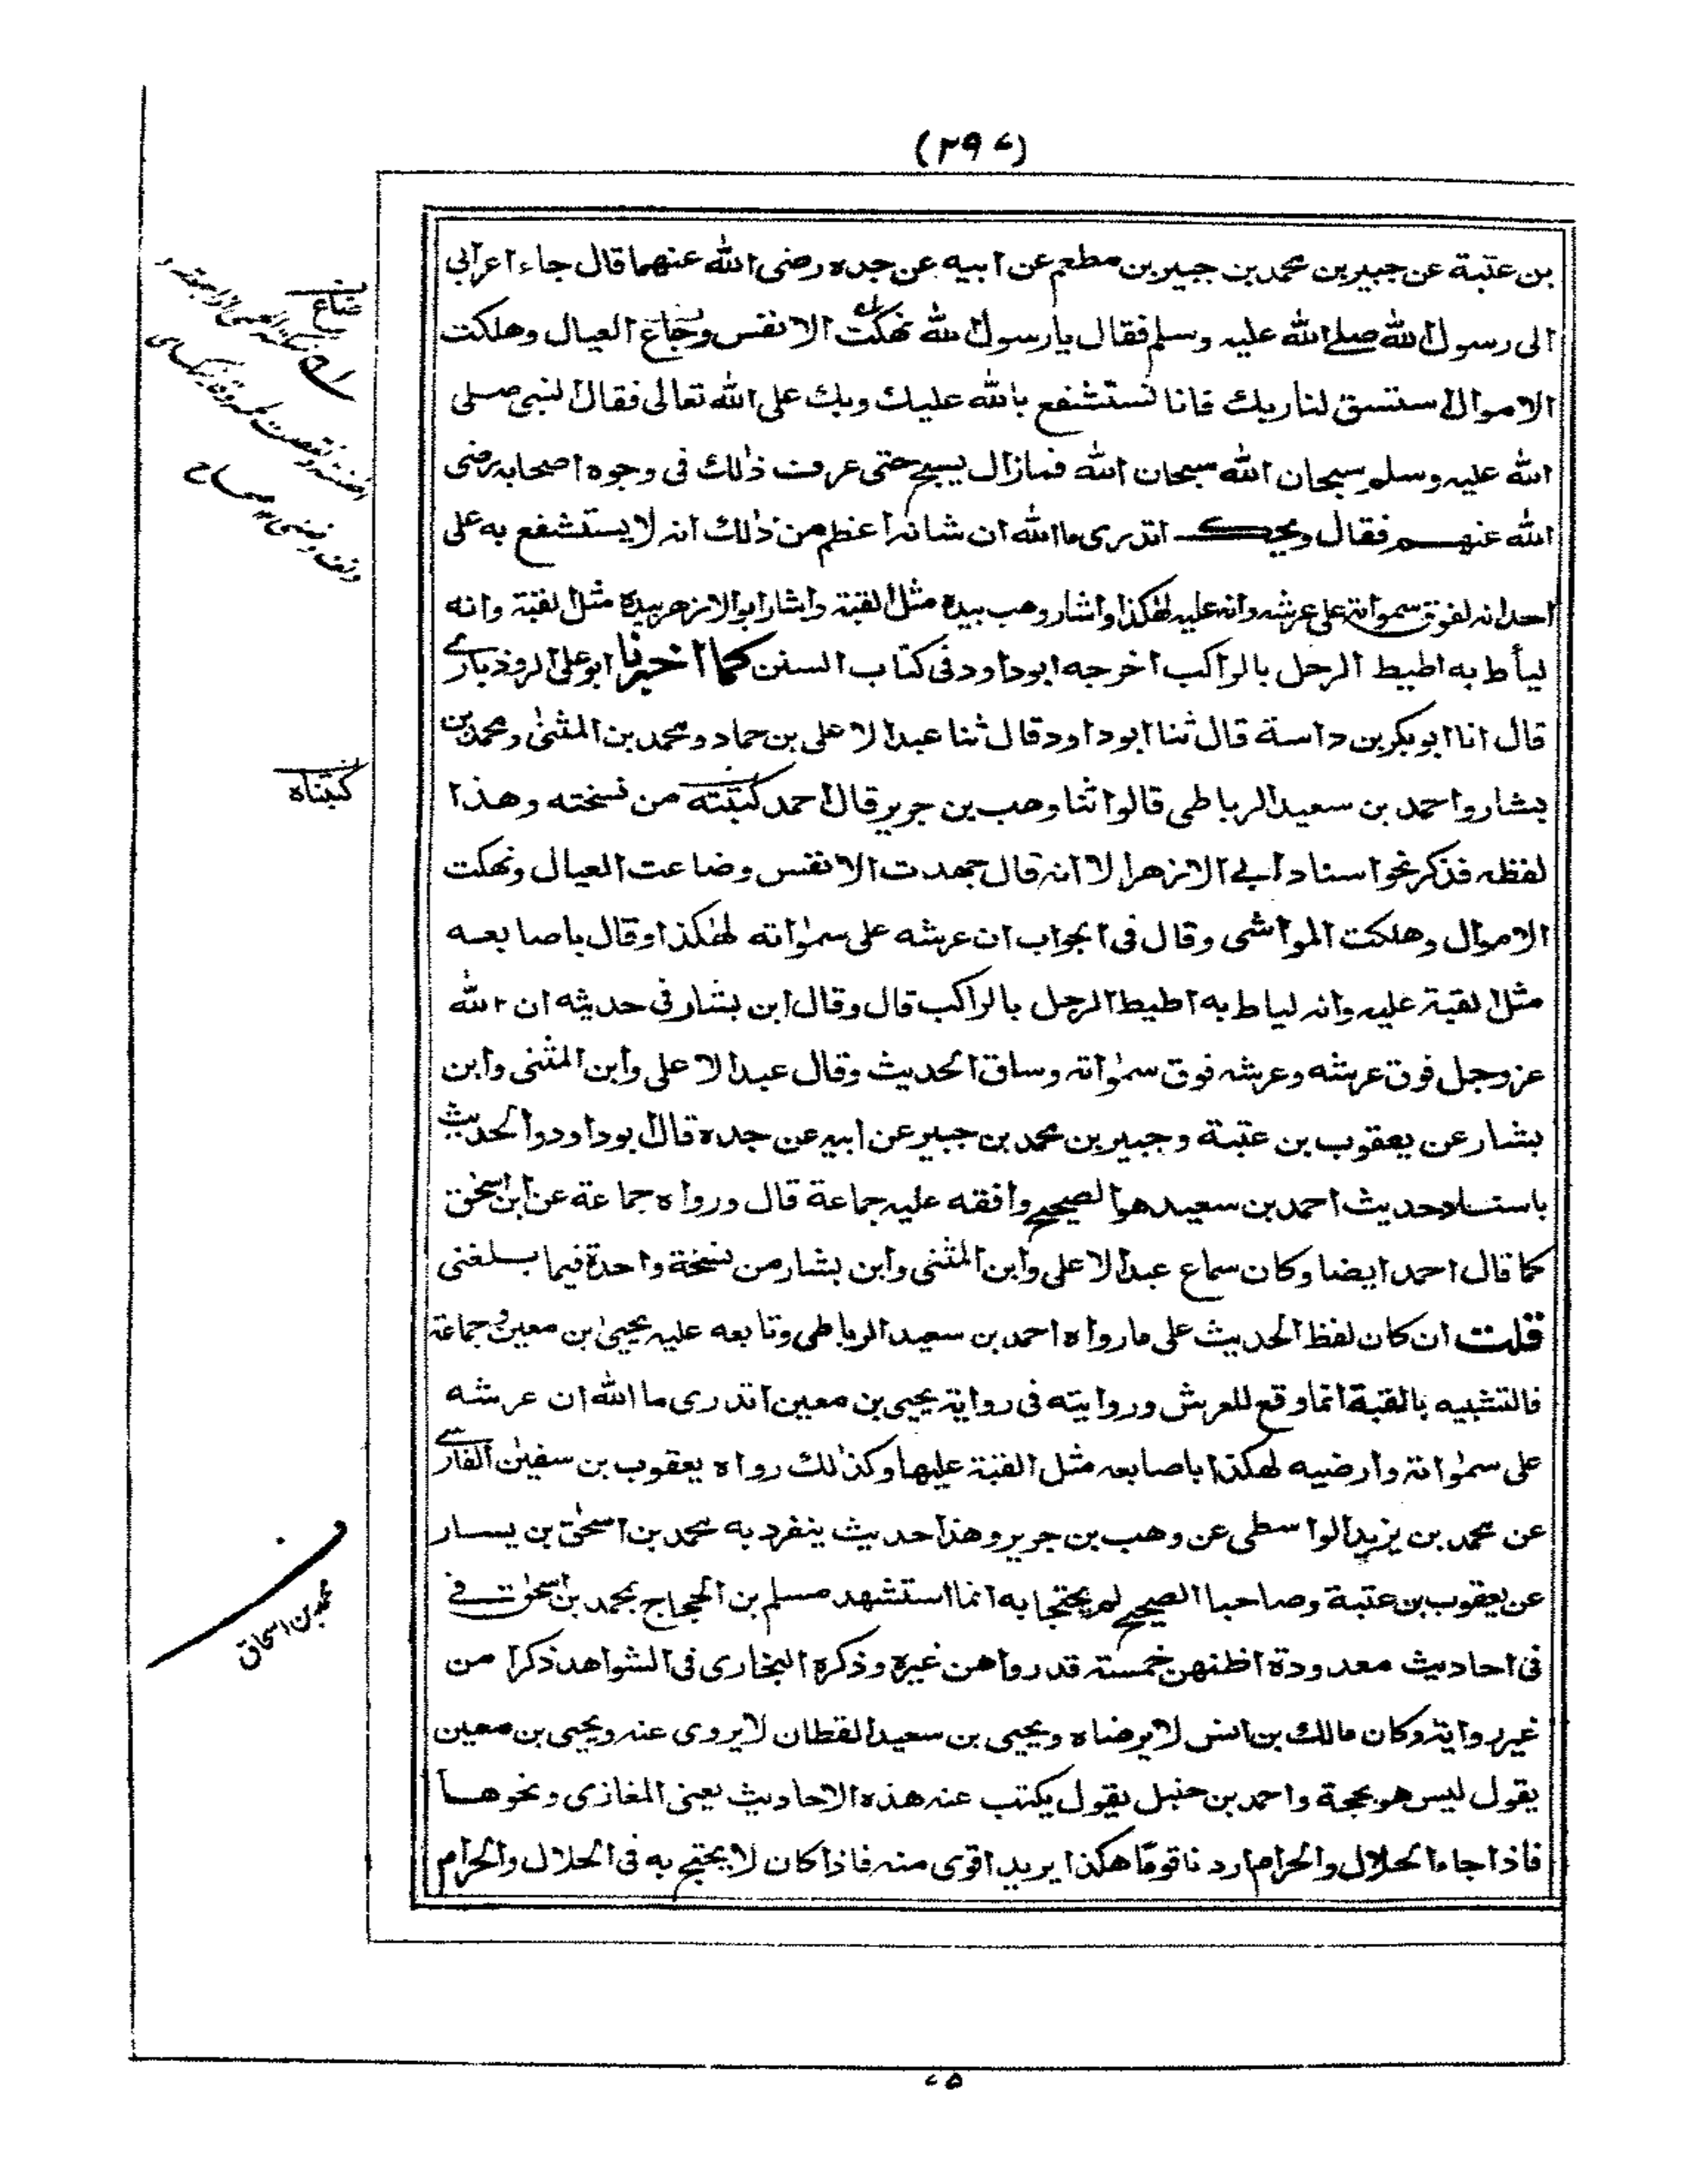 (٢٩٧)
بن عتبة عن جبير بن محمد بن جبير بن مطعم عن ابيه عن جده رضى الله عنهما قال جاء اعرابى
الى رسول الله صلى الله عليه وسلم فقال يا رسول الله نهكت الانفس وجاع العيال وهلكت
الاموال استسق لنا ربك فانا نستشفع بالله عليك وبك على الله تعالى فقال النبى صلى
الله عليه وسلم سبحان الله سبحان الله فمازال يسبح حتى عرف ذلك فى وجوه اصحابه رضى
الله عنهم فقال ويحك اتدرى ما الله ان شانه اعظم من ذلك انه لا يستشفع به على
احد انه لفوق سمواته على عرشه وانه عليه لهكذا واشار وهب بيده مثل القبة واشار ابو الازهر بيده مثل القبة وانه
ليأط به اطيط الرحل بالراكب اخرجه ابوداود فى كتاب السنن كما اخبرنا ابوعلى الروذبارى
قال انا ابوبكر بن داسة قال ثنا ابوداود قال ثنا عبد الاعلى بن حماد ومحمد بن المثنى ومحمد بن
بشار واحمد بن سعيد الرباطى قالوا ثنا وهب بن جرير قال احمد كتبته من نسخته وهذا
لفظه فذكر نحو اسناد ابى الازهر الا انه قال جهدت الانفس وضاعت العيال ونهكت
الاموال وهلكت المواشى وقال فى الجواب ان عرشه على سمواته لهكذا وقال باصابعه
مثل القبة عليه وانه لياط به اطيط الرحل بالراكب قال وقال ابن بشار فى حديثه ان الله
عزوجل فوق عرشه وعرشه فوق سمواته وساق الحديث وقال عبد الاعلى وابن المثنى وابن
بشار عن يعقوب بن عتبة وجبير بن محمد بن جبير عن ابيه عن جده قال ابوداود والحديث
باسناد حديث احمد بن سعيد هو الصحيح وافقه عليه جماعة قال ورواه جماعة عن ابن اسحق
كما قال احمد ايضا وكان سماع عبد الاعلى وابن المثنى وابن بشار من نسخة واحدة فيما بلغنى
قلت ان كان لفظ الحديث على ما رواه احمد بن سعيد الرباطى وتابعه عليه يحيى بن معين وجماعة
فالتشبيه بالقبة انما وقع للعرش وروايته فى رواية يحيى بن معين اتدرى ما الله ان عرشه
على سمواته وارضيه لهكذا باصابعه مثل القبة عليها وكذلك رواه يعقوب بن سفين الفارسى
عن محمد بن يزيد الواسطى عن وهب بن جرير وهذا حديث ينفرد به محمد بن اسحق بن يسار
عن يعقوب بن عتبة وصاحبا الصحيح لم يحتجا به انما استشهد مسلم بن الحجاج بمحمد بن اسحق فى
فى احاديث معدودة اظنهن خمسة قد رواهن غيره وذكره البخارى فى الشواهد ذكرا من
غير رواية وكان مالك بن انس لا يرضاه ويحيى بن سعيد القطان لا يروى عنه ويحيى بن معين
يقول ليس هو بحجة واحمد بن حنبل يقول يكتب عنه هذه الاحاديث يعنى المغازى ونحوها
فاذا جاء الحلال والحرام اردنا قوما هكذا يريد اقوى منه فاذا كان لا يحتج به فى الحلال والحرام
ضاع
كتبناه
محمد بن اسحاق
٧٥